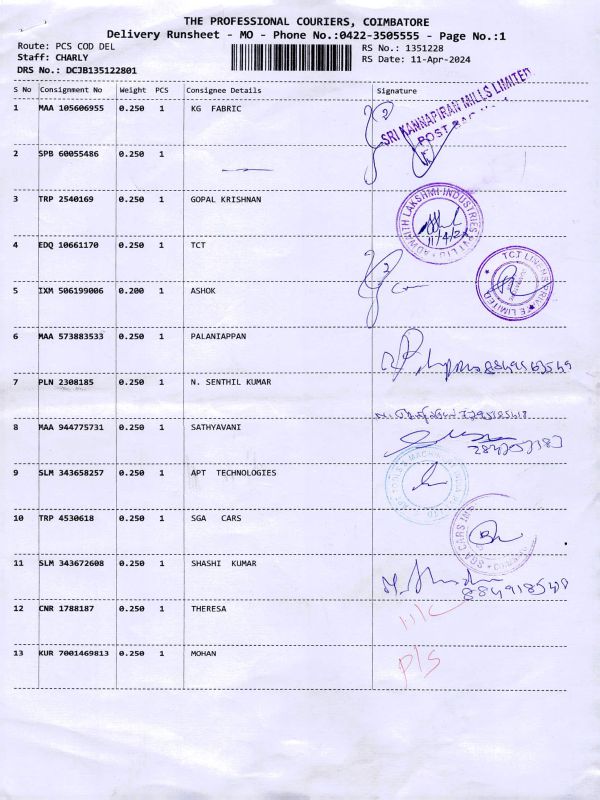 THE PROFESSIONAL COURIERS, COIMBATORE
Delivery Runsheet - MO - Phone No.:0422-3505555 - Page No.:1
Route: PCS COD DEL
Staff: CHARLY
DRS No.: DCJB135122801
RS No.: 1351228
RS Date: 11-Apr-2024
S No Consignment No Weight PCS Consignee Details Signature
1 MAA 105606955 0.250 1 KG FABRIC
SRI KANNAPIRAN MILLS LIMITED
POST
2 SPB 60055486 0.250 1
3 TRP 2540169 0.250 1 GOPAL KRISHNAN
ADWAITH LAKSHMI INDUSTRIES PVT LTD
11/4/24
4 EDQ 10661170 0.250 1 TCT
TCT LINENS PRIVATE LIMITED
5 IXM 506199006 0.200 1 ASHOK
6 MAA 573883533 0.250 1 PALANIAPPAN
7 PLN 2308185 0.250 1 N. SENTHIL KUMAR
8 MAA 944775731 0.250 1 SATHYAVANI
9 SLM 343658257 0.250 1 APT TECHNOLOGIES
10 TRP 4530618 0.250 1 SGA CARS
SGA CARS
11 SLM 343672608 0.250 1 SHASHI KUMAR
12 CNR 1788187 0.250 1 THERESA
13 KUR 7001469813 0.250 1 MOHAN
P/S